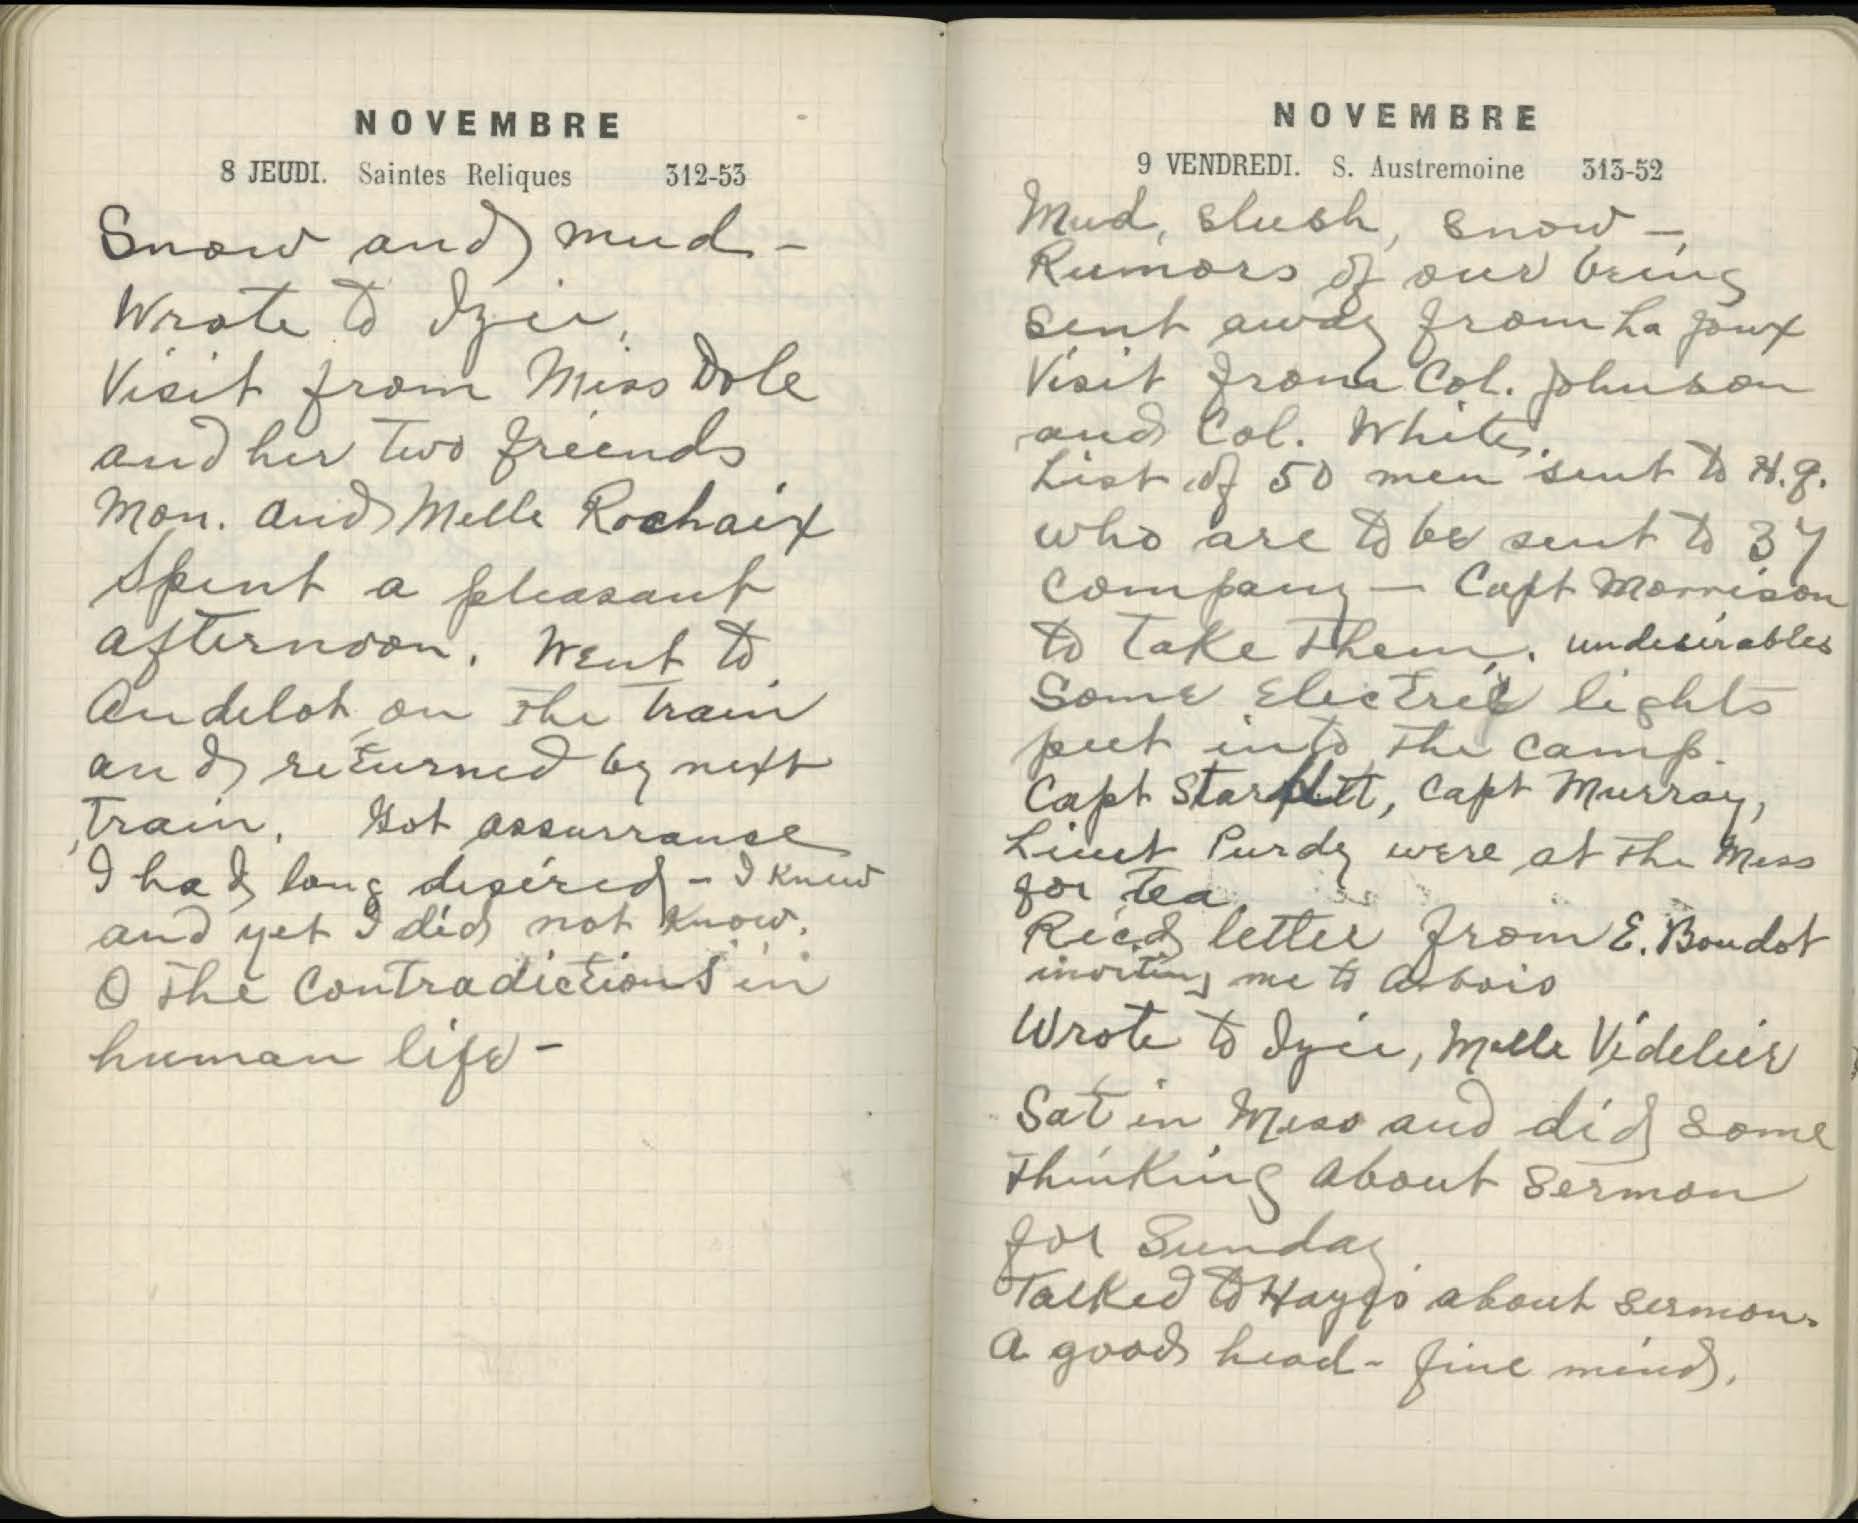 NOVEMBRE
8 JEUDI. Saintes Reliques 312-53
Snow and mud -
Wrote to Izie.
Visit from Miss Dole
and her two friends
Mon. and Melle Rochaix
Spent a pleasant
afternoon. Went to
Andelot on the train
and returned by next
train. Got assurranse
I had long desired - I knew
and yet I did not know.
O the contradictions in
human life -
NOVEMBRE
9 VENDREDI. S. Austremoine 313-52
Mud, slush, snow -
Rumors of our being
sent away from La Joux
Visit from Col. Johnson
and Col. White.
List of 50 men sent to H.q.
who are to be sent to 37
Company - Capt Morrison
to take them. undesirables
Some electric lights
put into the camp.
Capt Capt Murray,
Lieut Purdy were at the Mess
for tea
Rec'd letter from E. Boudot
inviting me to Arbois
Wrote to Izie, Melle Videlier
Sat in Mess and did some
thinking about sermon
for Sunday
Talked to about sermon.
A good head - fine mind.